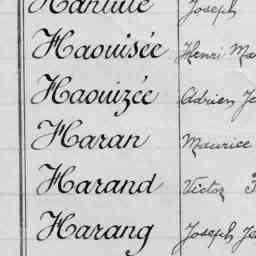 Joseph
Haouisée Henri Ma
Haouizée Adrien Je
Haran Maurice
Harand Victor
Harang Joseph Je